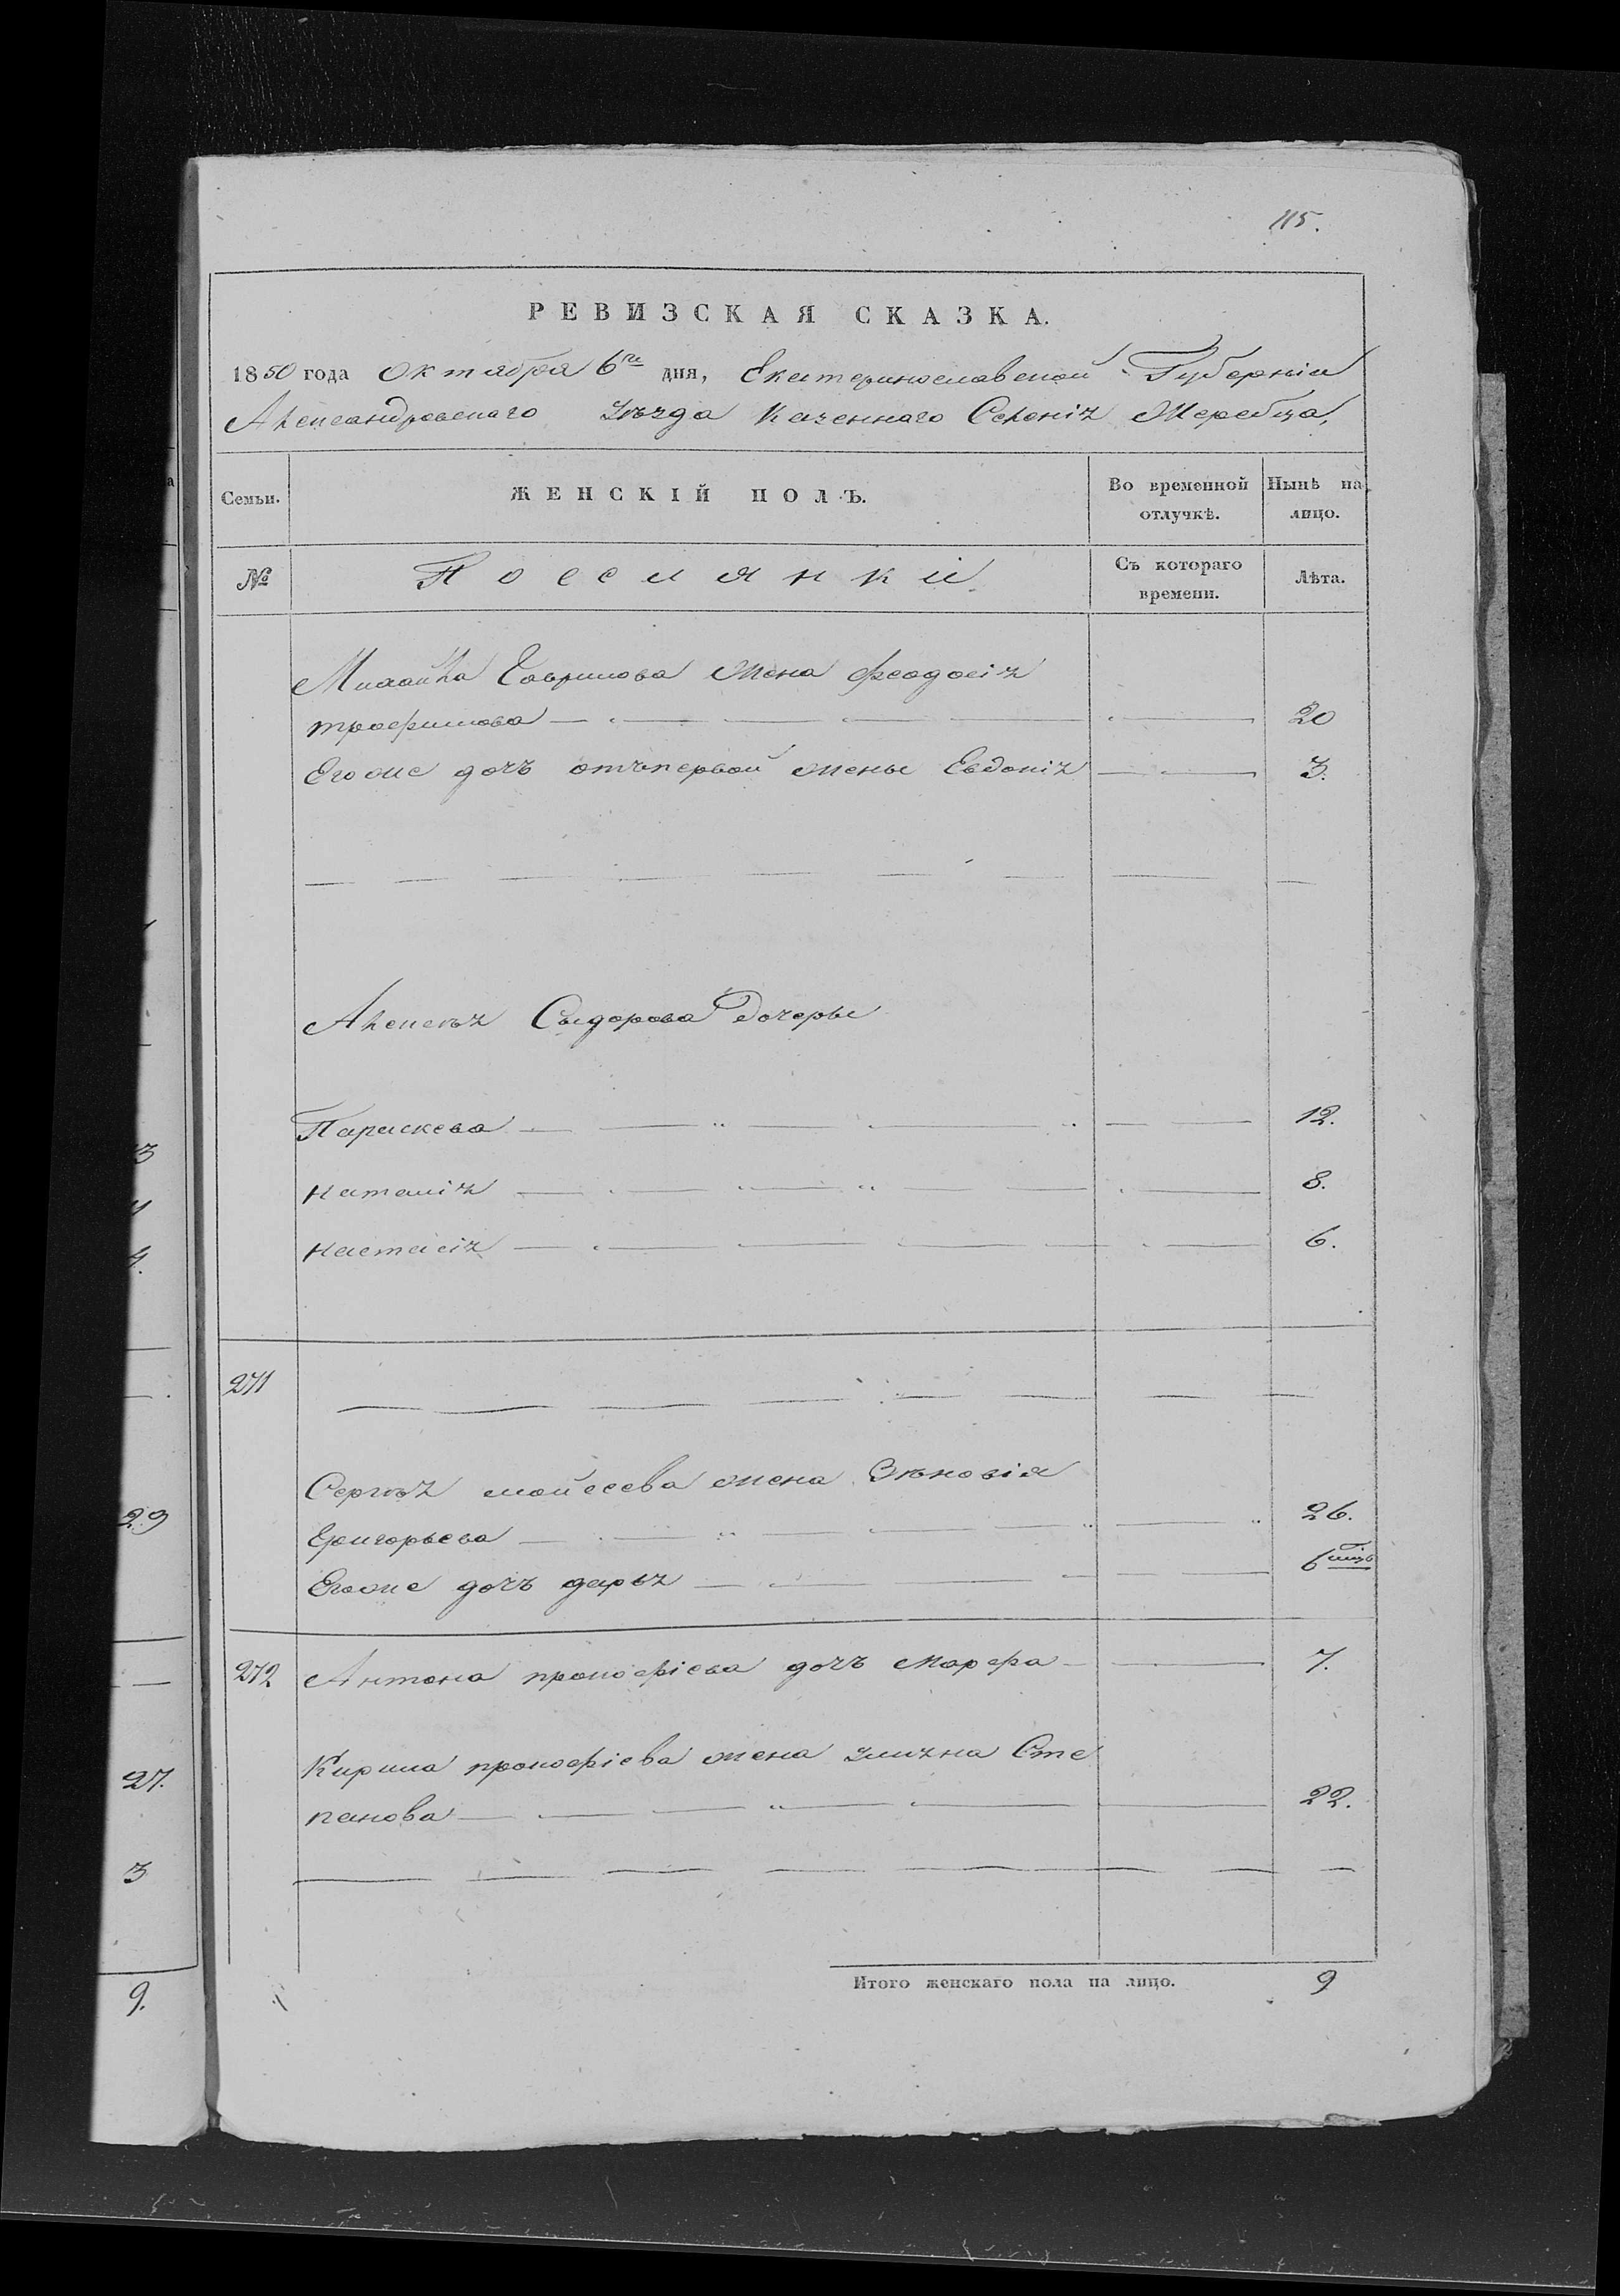 115.
РЕВИЗСКАЯ СКАЗКА.
1850 года Октября 6го дня, Екатеринославской Губерніи
Александровскаго Уѣзда Казеннаго Селенія Жеребца,
Семьи. ЖЕНСКІЙ ПОЛЪ. Во временной отлучкѣ. Нынѣ на лицо.
№ Поселянки Съ котораго времени. Лѣта.
Михайла Гаврилова жена феодосія
трофимова 20
Его же дочь отъ первой жены Евдокія 3.
Алексѣя Сыдорова Дочеры
Параскева 12.
наталія 8.
настасія 6.
271
Сергѣя мойсеева жена Зѣновія
Григорьева 26.
Его же дочь дарья 6 мцъ
272 Антона прокофіева дочь марфа 7.
Кирила прокофіева жена улияна Сте
панова 22.
Итого женскаго пола на лицо. 9
3
4
4.
29
27.
3
9.